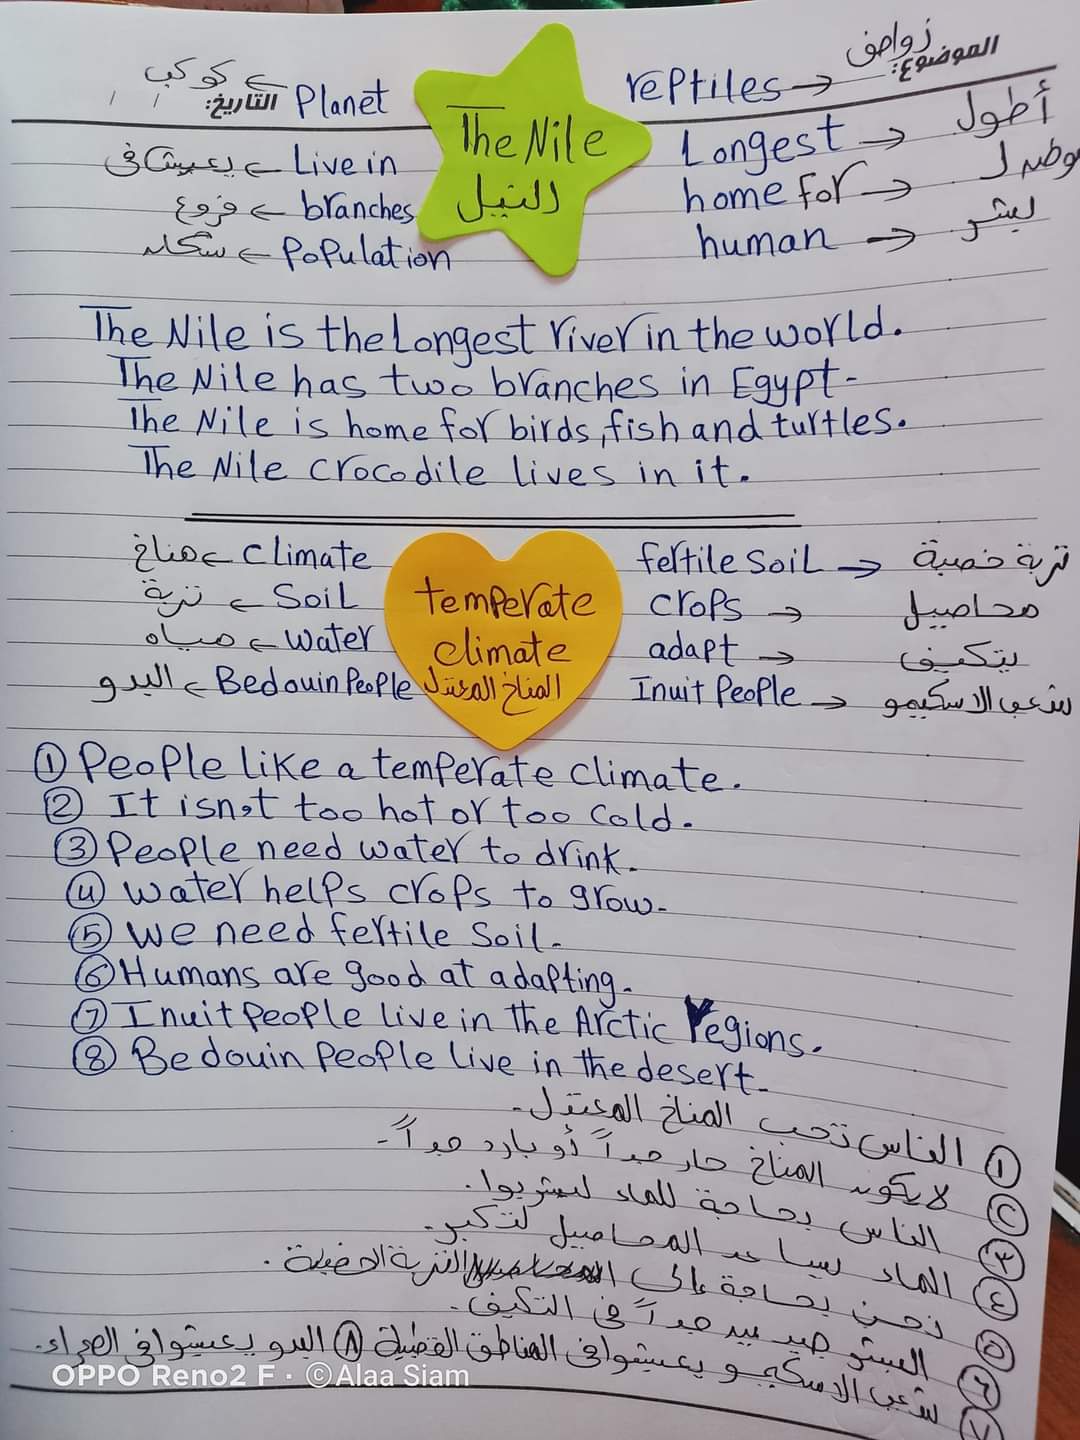 الموضوع: زواحف
reptiles →
Planet → كوكب
التاريخ: / /
The Nile
النيل
Longest → أطول
Live in → يعيش فى
home for → موطن لـ
branches → فروع
human → بشر
Population → سكان
The Nile is the Longest river in the world.
The Nile has two branches in Egypt-
The Nile is home for birds, fish and turtles.
The Nile crocodile lives in it.
Climate → مناخ
fertile soil → تربة خصبة
temperate
climate
المناخ المعتدل
Soil → تربة
crops → محاصيل
water → مياه
adapt → يتكيف
Bedouin People → البدو
Inuit People → شعب الاسكيمو
① People like a temperate climate.
② It isn't too hot or too cold.
③ People need water to drink.
④ water helps crops to grow.
⑤ we need fertile soil.
⑥ Humans are good at adapting.
⑦ Inuit people live in the Arctic regions.
⑧ Bedouin people live in the desert.
① الناس تحب المناخ المعتدل.
② لا يكون المناخ حار جداً أو بارد جداً.
٣ الناس بحاجة للماء ليشربوا.
٤ الماء يساعد المحاصيل لتكبر.
٥ نحن بحاجة إلى التربة الخصبة.
٦ البشر جيديد جداً فى التكيف.
٧ شعب الاسكيمو يعيشوا فى المناطق القطبية ٨ البدو يعيشوا فى الصحراء.
OPPO Reno2 F · ©Alaa Siam